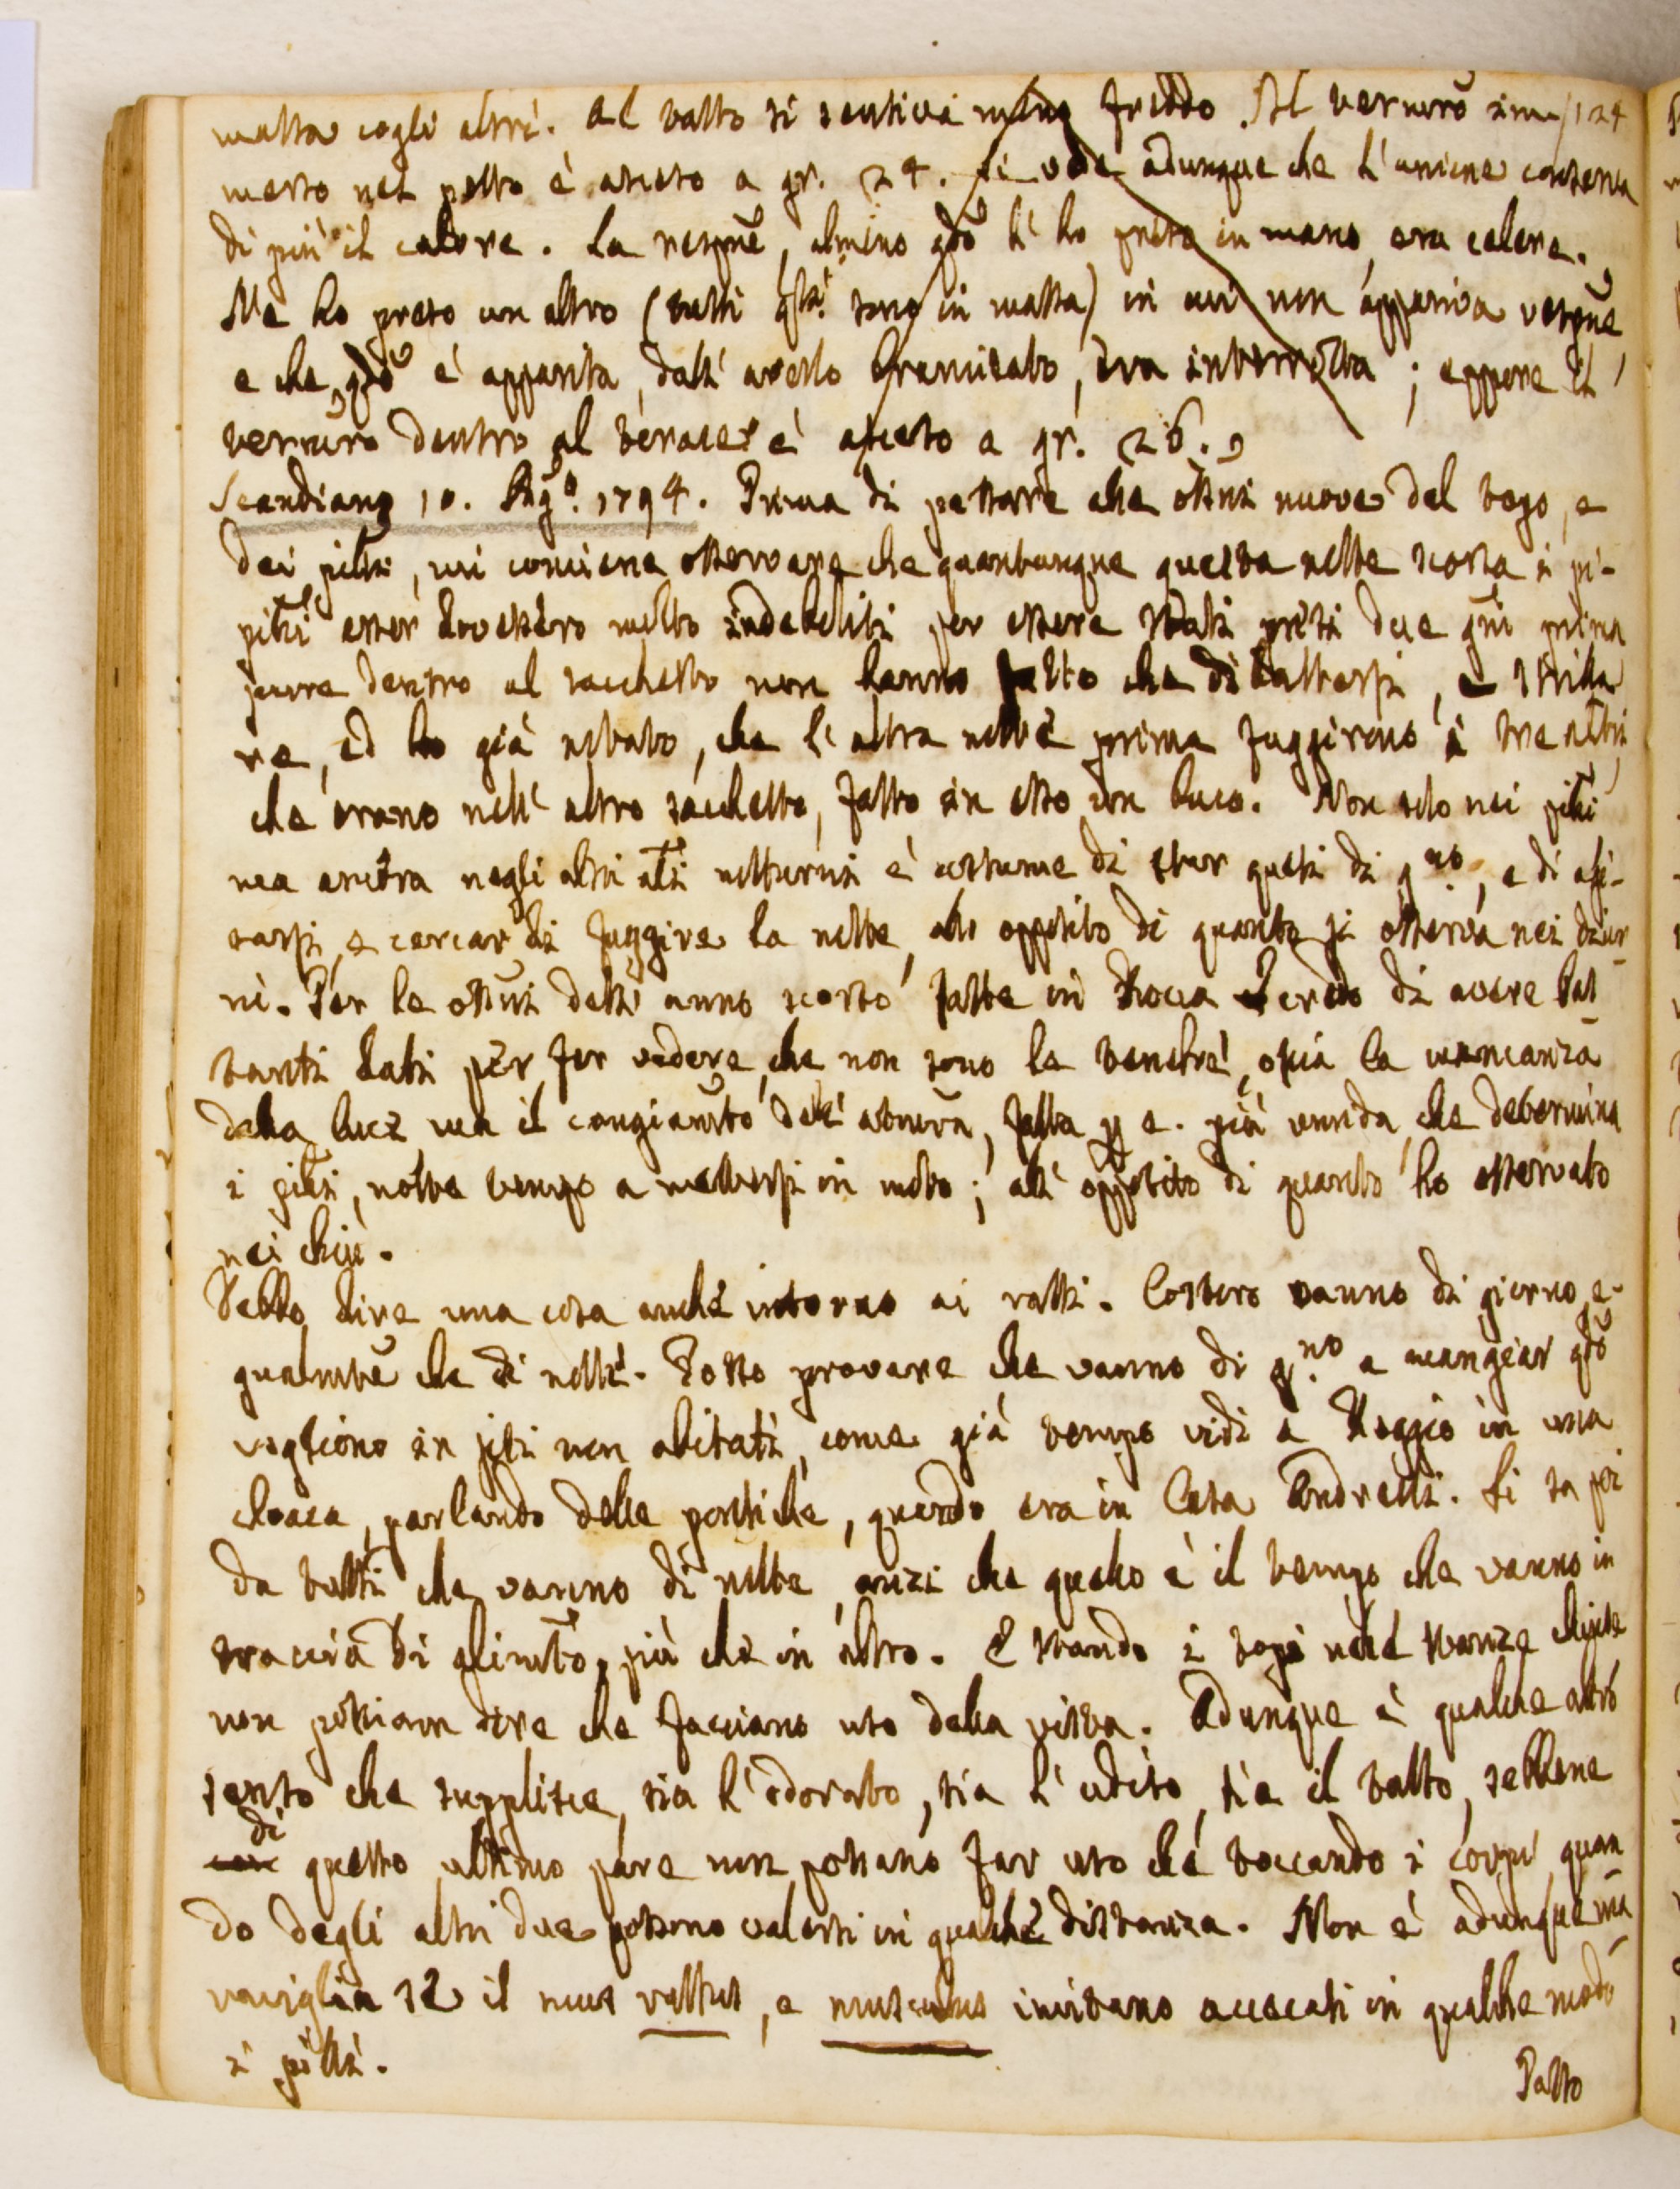 massa cogli altri. Al tatto si sentiva meno freddo. Il termro im- 124
merso nel petto è asceso a gr. 24. Si vede adunque che l'unione conserva
di più il calore. La respne, almeno qdo l'ho preso in mano, era celere.
Ne ho preso un altro (tutti qsti sono in massa) in cui non appariva respne
e che qdo è apparita, dall' averlo brancicato, era interrotta; eppure il
termro dentro al torace è asceso a gr. 26.
Scandiano 10. Agto. 1794. Prima di passare alle ossni nuove del topo, e
dei pilli, mi conviene osservare che quantunque questa notte scorsa i pi-
pilli esser dovessero molto indeboliti per essere stati presi due gni prima
pure dentro al sacchetto non hanno fatto che dibattersi, e strilla
re, ed ho già notato, che l'altra notte prima fuggirono i tre altri
che erano nell' altro sacchetto, fatto in esso un buco. Non solo nei pilli
ma ancora negli altri ali notturni è costume di star queti di gno, e di agi-
tarsi, e cercar di fuggire la notte, all' opposito di quanto si osserva nei diur
ni. Per le ossni dell' anno scorso fatte in Rocca credo di avere bas
tanti dati per far vedere, che non sono le tenebre, ossia la mancanza
della luce ma il cangiamto dell' atmosra, fatta p e. più umida, che determina
i pilli, notte tempo a mettersi in moto; all' opposito di quanto ho osservato
nei chiù.
Debbo dire una cosa anche intorno ai ratti. Costoro vanno di giorno e-
gualmte che di notte. Posso provare che vanno di gno a mangiar qdo
vogliono in siti non abitati, come già tempo vidi a Reggio in una
cloaca, parlando delle pontiche, quando era in Casa Andreoli. Si sa poi
da tutti che vanno di notte, anzi che quello è il tempo che vanno in
traccia di alimto, più che in altro. E stando i topi nelle stanze chiuse
non possiam dire che facciano uso della vista. Adunque è qualche altro
senso che supplisce, sia l'odorato, sia l'udito, sia il tatto, sebbene
di
questo ultimo pare non possano far uso che toccando i corpi, quan
do degli altri due possono valersi in qualche distanza. Non è adunque ma
raviglia se il mus rattus, e musculus imitano acecati in qualche modo
i pilli.
Passo